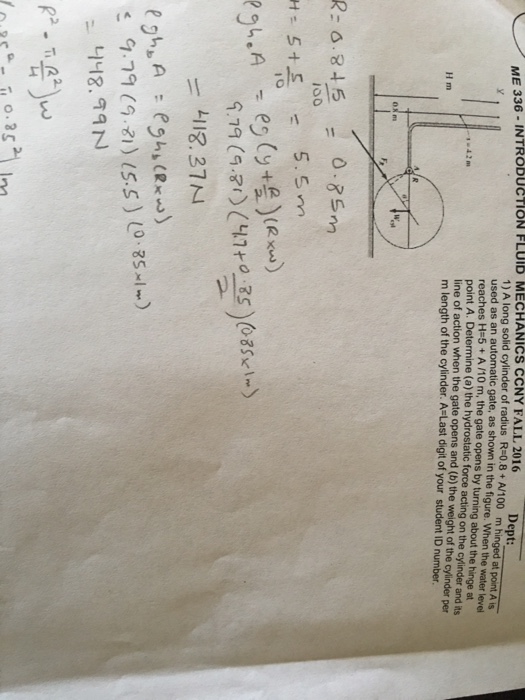 ME 336 - INTRODUCTION FLUID MECHANICS CCNY FALL 2016 Dept:
1) A long solid cylinder of radius R=0.8 + A/100 m hinged at point A is
used as an automatic gate, as shown in the figure. When the water level
reaches H=5 + A /10 m, the gate opens by turning about the hinge at
point A. Determine (a) the hydrostatic force acting on the cylinder and its
line of action when the gate opens and (b) the weight of the cylinder per
m length of the cylinder. A=Last digit of your student ID number.
H m
s = 4.2 m
0.8 m
A
R
R = 0.8 + 5/100 = 0.85m
H = 5 + 5/10 = 5.5m
ρghcA = ρg(y + R/2)(R×w)
9.79(9.81)(4.7+0.85/2)(0.85×1m)
= 418.37N
ρghbA = ρghb(R×w)
= 9.79(9.81)(5.5)(0.85×1m)
= 448.99N
R² - πR²/4)w
0.85² - π0.85²) 1m